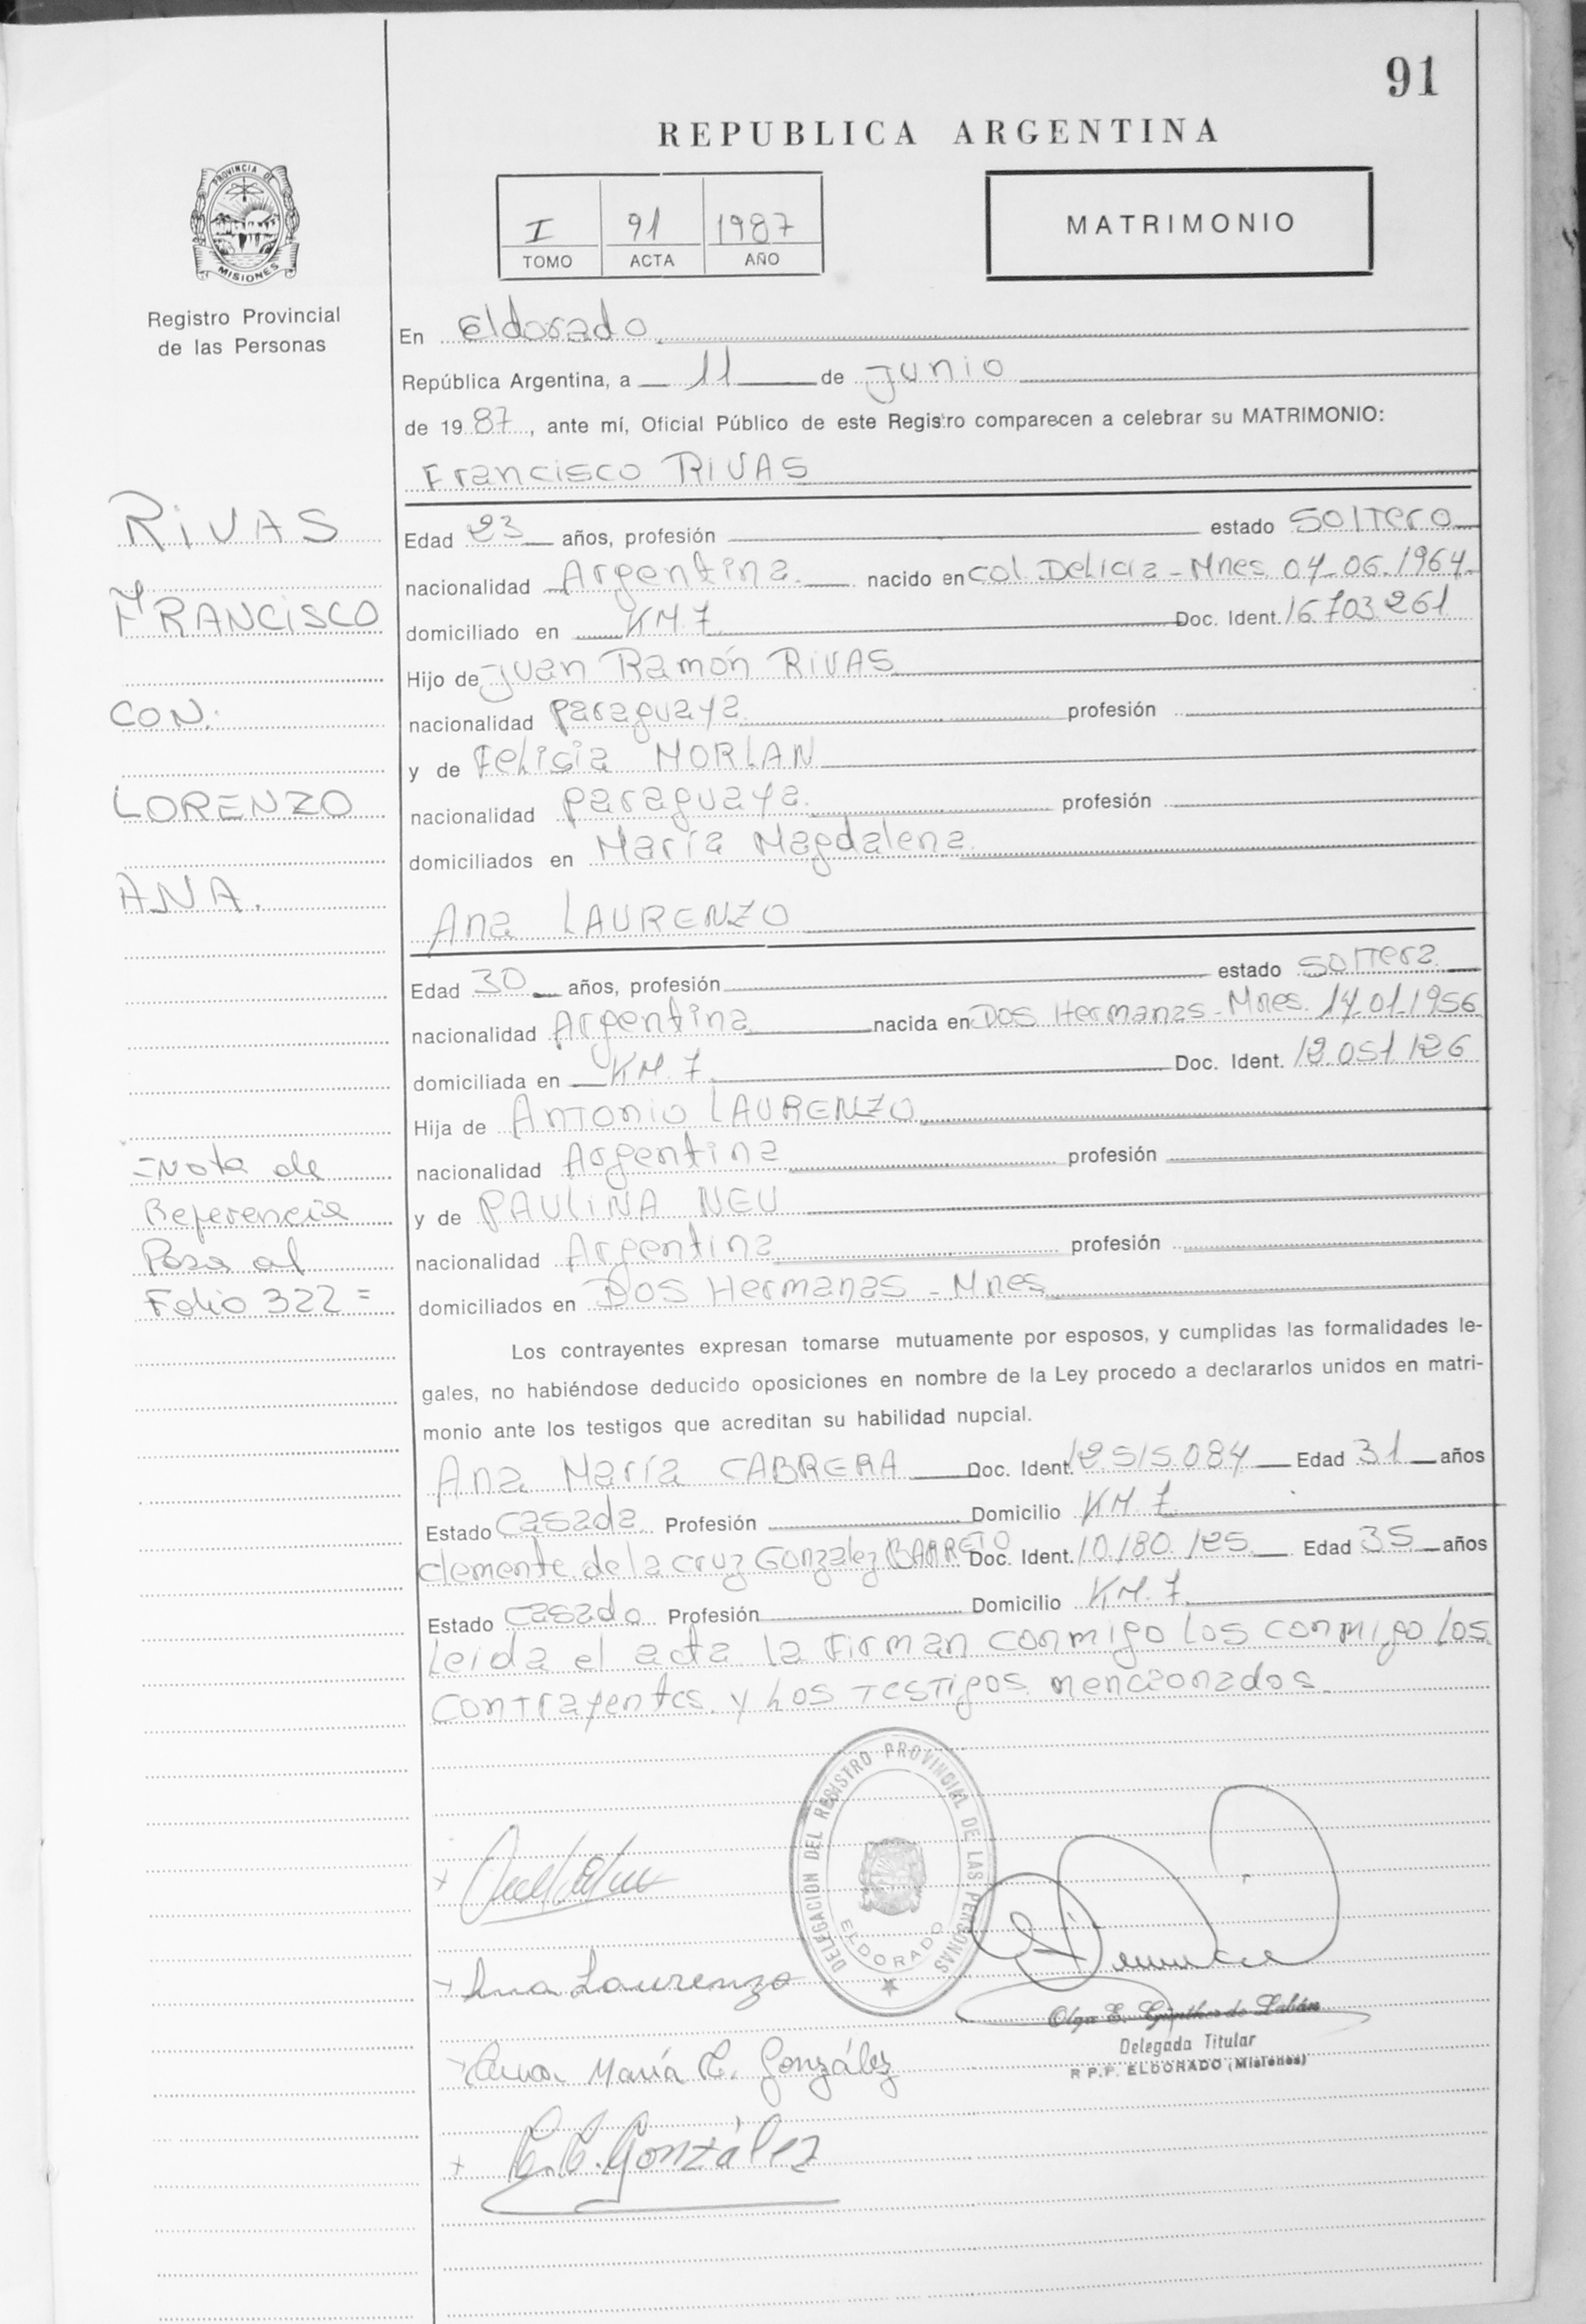 91
REPUBLICA ARGENTINA
PROVINCIA DE
MISIONES
Registro Provincial
de las Personas
I 91 1987
TOMO ACTA AÑO
MATRIMONIO
En Eldorado
República Argentina, a 11 de Junio
de 1987, ante mí, Oficial Público de este Registro comparecen a celebrar su MATRIMONIO:
Francisco RIVAS
Edad 23 años, profesión estado Soltero
nacionalidad Argentina nacido en Col. Delicia - Mnes. 04-06-1964
domiciliado en KM. 7 Doc. Ident. 16.703.261
Hijo de Juan Ramón RIVAS
nacionalidad Paraguaya profesión
y de Felisia MORLAN
nacionalidad Paraguaya profesión
domiciliados en María Magdalena
Ana LAURENZO
Edad 30 años, profesión estado Soltera
nacionalidad Argentina nacida en Dos Hermanas - Mnes. 14-01-1956
domiciliada en KM. 7 Doc. Ident. 12.051.126
Hija de Antonio LAURENZO
nacionalidad Argentina profesión
y de PAULINA NEU
nacionalidad Argentina profesión
domiciliados en Dos Hermanas - Mnes
Los contrayentes expresan tomarse mutuamente por esposos, y cumplidas las formalidades le-
gales, no habiéndose deducido oposiciones en nombre de la Ley procedo a declararlos unidos en matri-
monio ante los testigos que acreditan su habilidad nupcial.
Ana María CABRERA Doc. Ident. 12.515.084 Edad 31 años
Estado Casada Profesión Domicilio KM. 7
Clemente de la Cruz Gonzalez BARRETO Doc. Ident. 10.180.125 Edad 35 años
Estado Casado Profesión Domicilio KM. 7
Leida el acta la Firman conmigo los conmigo los
contrayentes y los Testigos mencionados.
RIVAS
FRANCISCO
CON:
LORENZO
ANA.
=Nota de
Referencia
Pasa al
Folio 322=
DELEGACION DEL REGISTRO PROVINCIAL DE LAS PERSONAS
ELDORADO
Ana Laurenzo
Ana María C. González
C. C. González
Olga E. Günther de Labán
Delegada Titular
R.P.P. ELDORADO (Misiones)